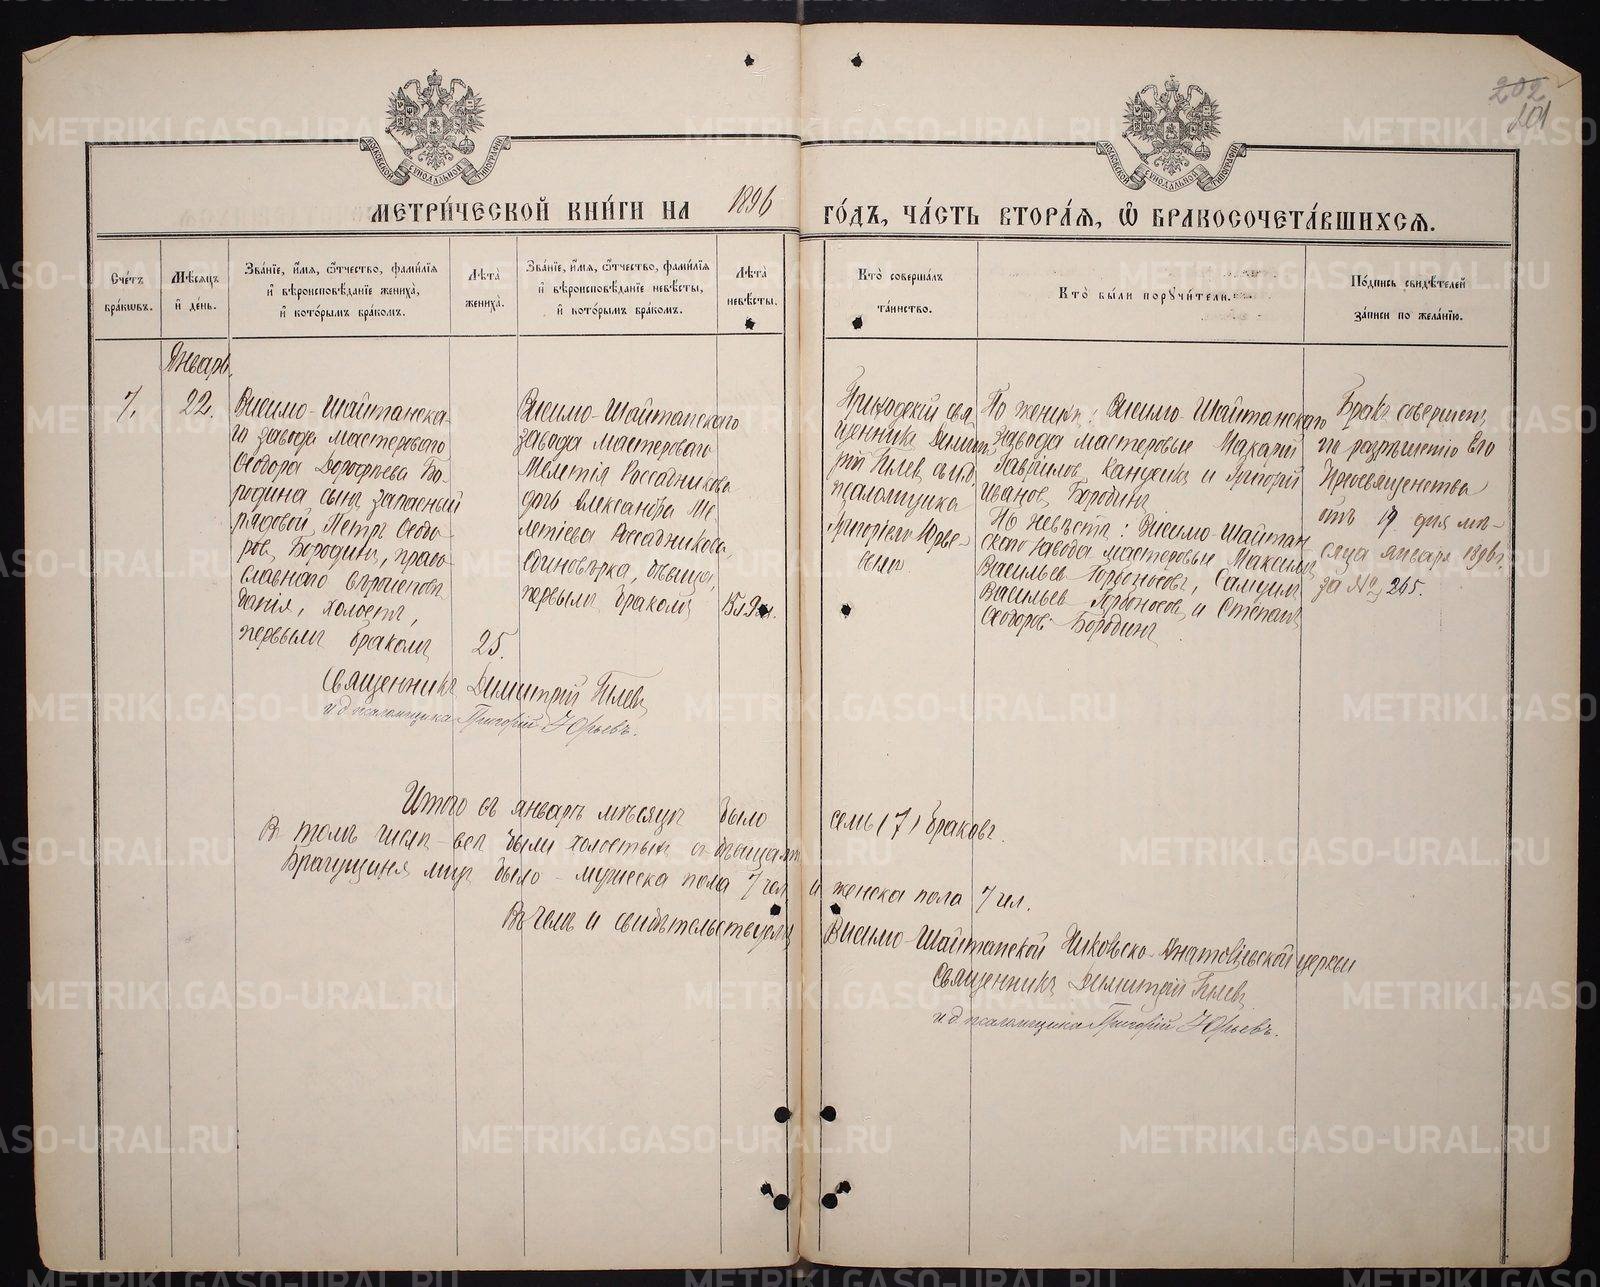 202
101
МОСКОВСКОЙ СУНОДАЛЬНОЙ ТИПОГРАФІИ
МОСКОВСКОЙ СУНОДАЛЬНОЙ ТИПОГРАФІИ
МЕТРИ́ЧЕСКОЙ КНИ́ГИ НА 1896 ГО́ДЪ, ЧА́СТЬ ВТОРА́Я, Ѡ БРАКОСОЧЕТА́ВШИХСЯ.
Сче́тъ
бра́ковъ.
Мѣ́сяцъ
и҆ де́нь.
Зва́нїе, и҆́мя, ѻ҆́тчество, фами́лїя
и҆ вѣроисповѣ́данїе жениха̀,
и҆ кото́рымъ бра́комъ.
Лѣ́та
жениха̀.
Зва́нїе, и҆́мя, ѻ҆́тчество, фами́лїя
и҆ вѣроисповѣ́данїе невѣ́сты,
и҆ кото́рымъ бра́комъ.
Лѣ́та
невѣ́сты.
Кто̀ соверша́лъ
та́инство.
Кто̀ бы́ли порꙋчи́тели.
По́дпись свидѣ́телей
за́писи по жела́нїю.
Январь.
7.
22.
Висимо-Шайтанска-
го завода мастероваго
Ѳеодора Дорофѣева Бо-
родина сынъ, запасный
рядовой, Петръ Ѳеодо-
ровъ Бородинъ, право-
славнаго вѣроисповѣ-
данія, холостъ,
первымъ бракомъ
25.
Висимо-Шайтанскаго
завода мастероваго
Мелетія Россадникова
дочь Александра Ме-
летіева Россадникова,
единовѣрка, дѣвица,
первымъ бракомъ
15 л 9 м.
Приходскій свя-
щенникъ Димит-
рій Пылевъ съ и.д.
псаломщика
Григоріемъ Юрье-
вымъ
По женихѣ: Висимо-Шайтанскаго
завода мастеровые Макарій
Гавриловъ Канусикъ и Григорій
Ивановъ Бородинъ
По невѣстѣ: Висимо-Шайтан
скаго завода мастеровые Максимъ
Васильевъ Горбоносовъ, Самуилъ
Васильевъ Горбоносовъ и Степанъ
Ѳеодоровъ Бородинъ
Бракъ совершенъ
по разрѣшенію Его
Преосвященства
отъ 19 дня мѣ-
сяца января 1896 г.
за № 265.
Священникъ Димитрій Пылевъ
и д псаломщика Григорій Юрьевъ.
Итого въ январѣ мѣсяцѣ было семь (7) браковъ.
Въ томъ числѣ - всѣ были холостыхъ съ дѣвицами
Брачущихся лицъ было - мужеска пола 7 чел. и женска пола 7 чел.
Въ чемъ и свидѣтельствуемъ Висимо-Шайтанской Никольско-Анатоліевской церкви
Священникъ Димитрій Пылевъ
и д псаломщика Григорій Юрьевъ.
METRIKI.GASO-URAL.RU